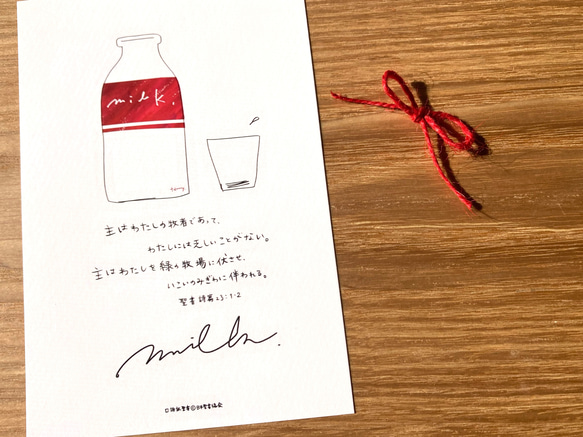 milk.
主はわたしの牧者であって、
わたしには乏しいことがない。
主はわたしを緑の牧場に伏させ、
いこいのみぎわに伴われる。
聖書 詩篇 23:1-2
milk.